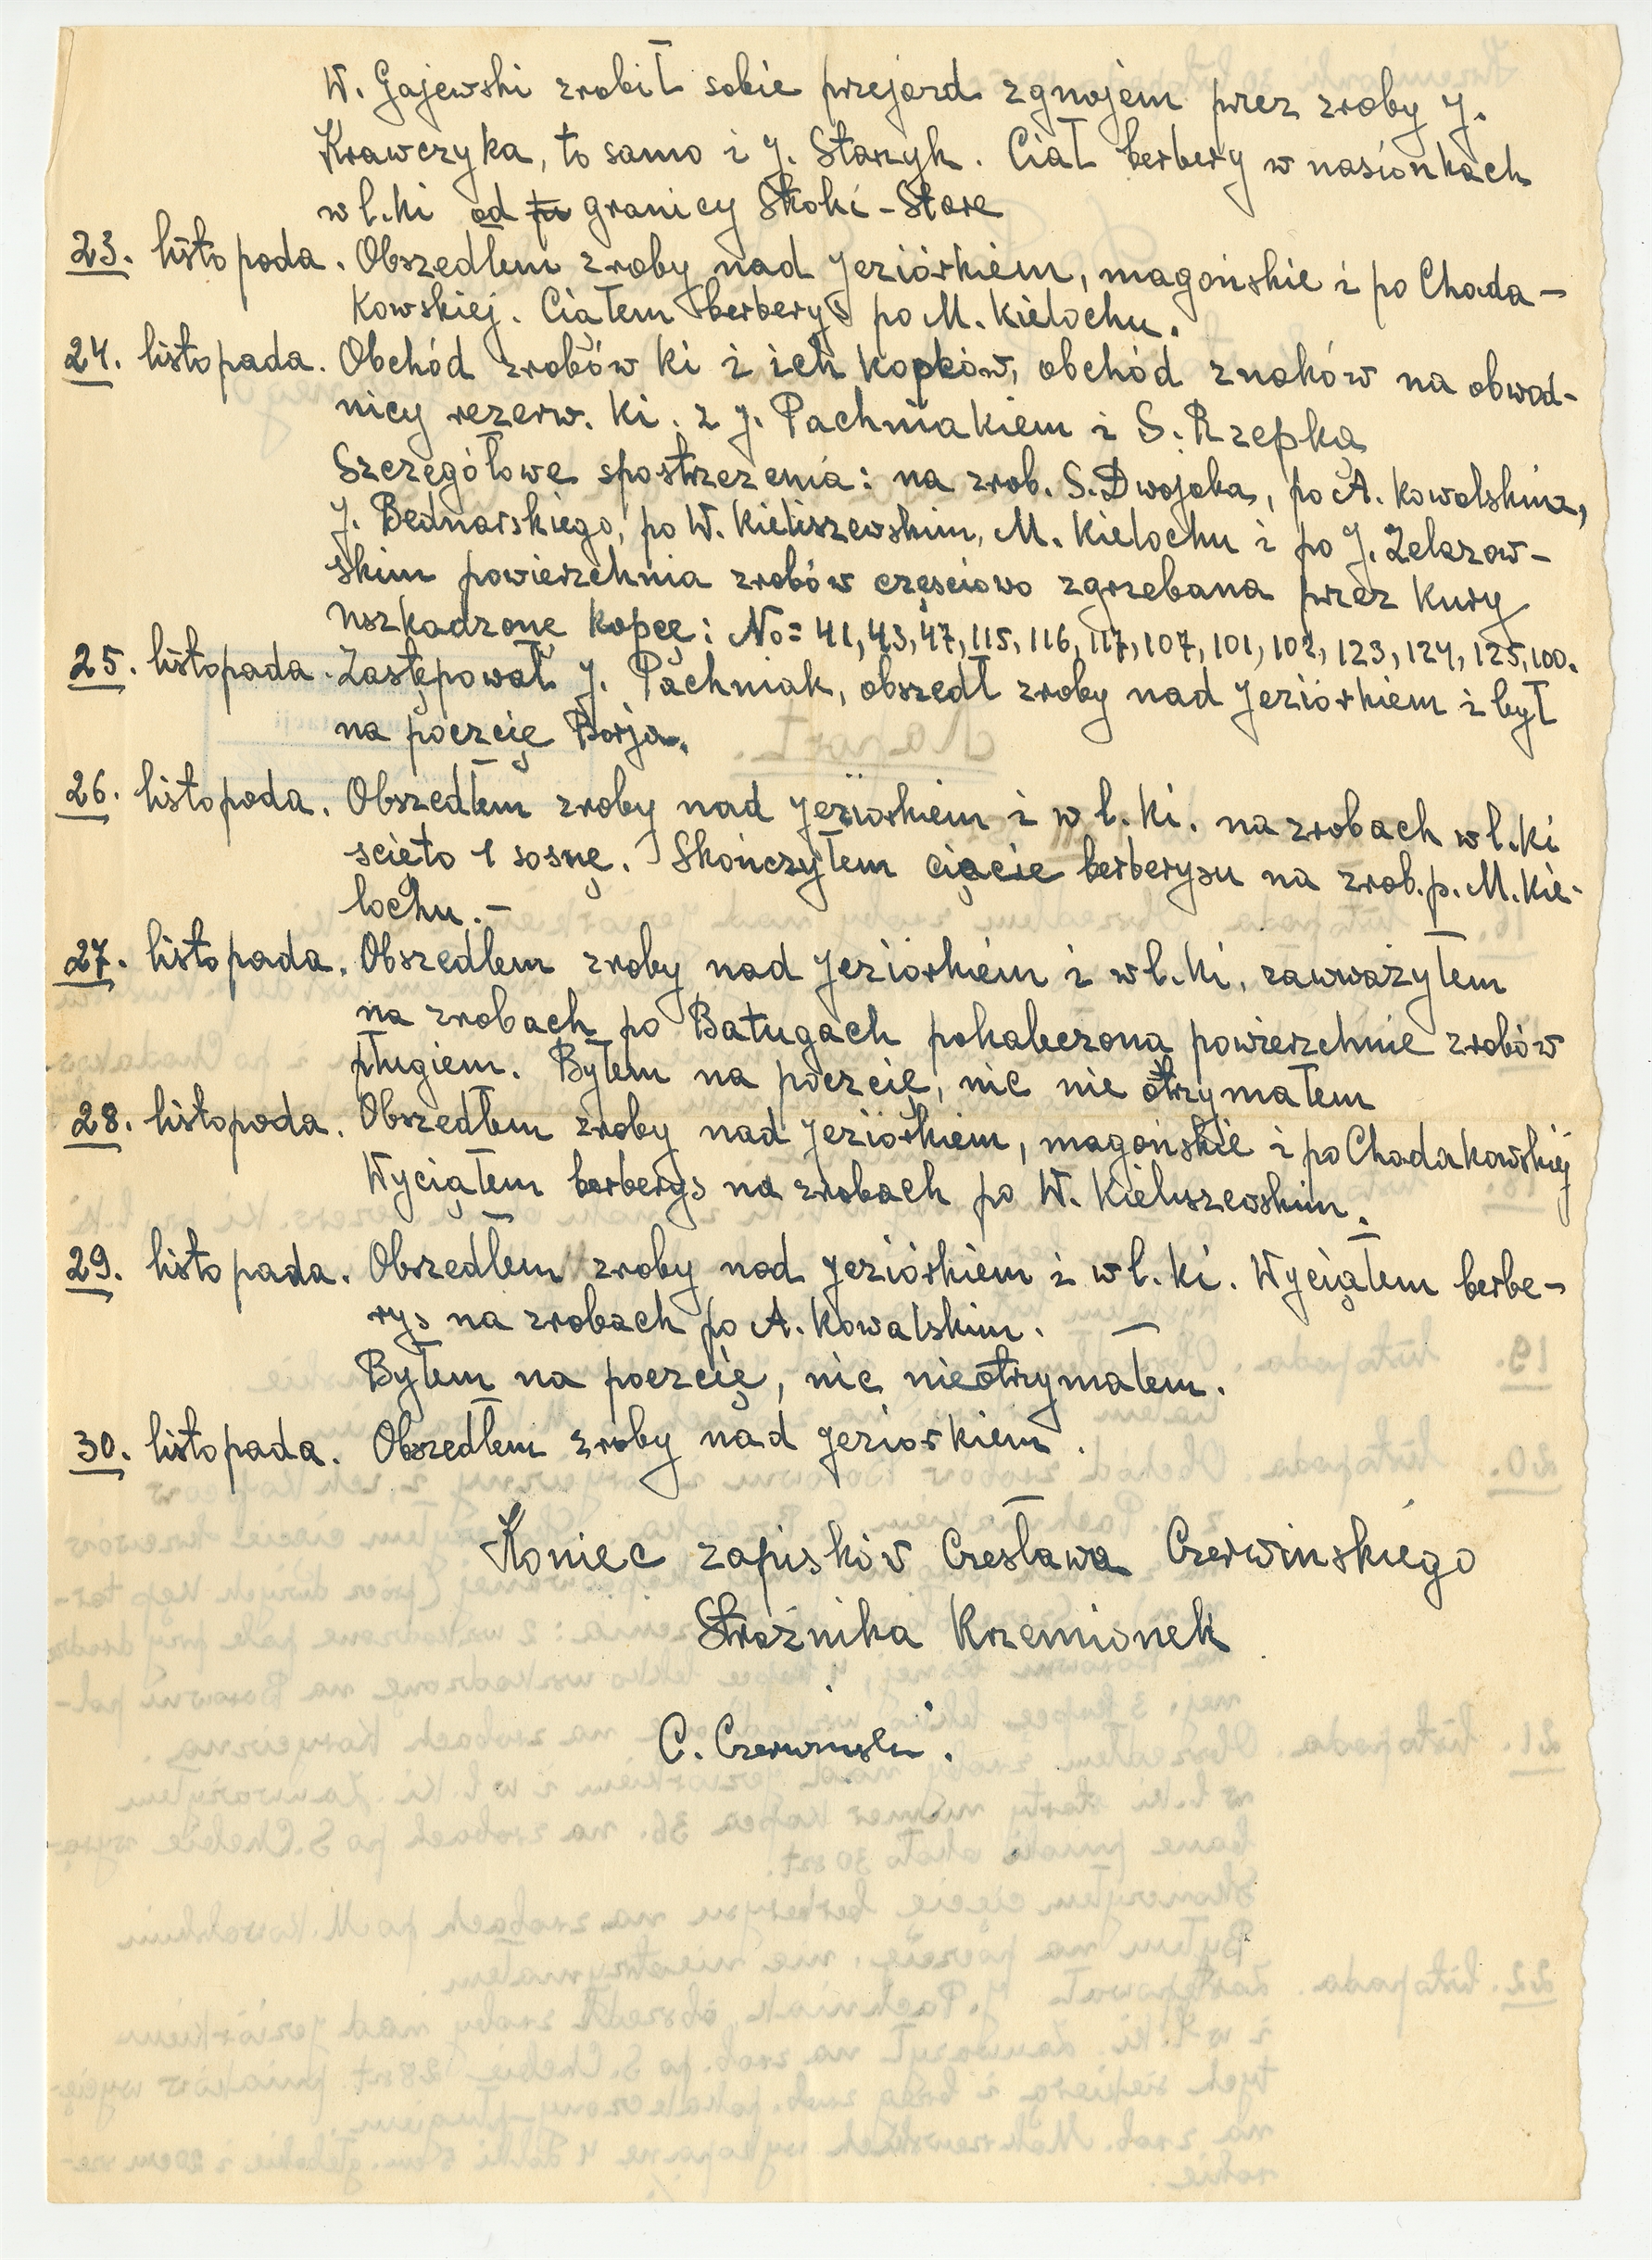 W. Gajewski zrobił sobie przejazd z gnojem przez zroby J.
Krawczyka, to samo i J. Starzyk. Ciął berberys w nasionkach
w l.Ki od granicy Skoki-Stare
23. listopada. Obszedłem zroby nad Jeziórkiem, magońskie i po Choda-
kowskiej. Ciąłem berberys po M. Kielochu.
24. listopada. Obchód zrobów Ki i ich kopców, obchód znaków na obwod-
nicy rezerw. Ki. z J. Pachniakiem i S. Rzepką
Szczegółowe spostrzezenia: na zrob. S. Dwojaka, po A. Kowalskim,
J. Bednarskiego, po W. Kieliszewskim, M. Kielochu i po J. Zelazow-
skim powierzchnia zrobów częsciowo zgrzebana przez kury
Uszkadzone kopce: No= 41, 43, 47, 115, 116, 117, 107, 101, 102, 123, 124, 125, 100.
25. listopada. Zastępował J. Pachniak, obszedł zroby nad Jeziórkiem i był
na poczcie Borja.
26. listopada. Obszedłem zroby nad Jeziorkiem i w l. Ki. na zrobach w l.Ki
scięto 1 sosnę. Skończyłem cięcie berberysu na zrob. p. M. Kie-
lochu.-
27. listopada. Obszedłem zroby nad Jeziórkiem i w l. Ki, zauważyłem
na zrobach po Batugach pokaleczona powierzchnie zrobów
pługiem. Byłem na poczcie, nic nie otrzymałem
28. listopada. Obszedłem zroby nad Jeziórkiem, magońskie i po Chodakowskiej
Wyciąłem berberys na zrobach po W. Kieliszewskim.
29. listopada. Obszedłem zroby nad Jeziórkiem i w l. Ki. Wyciąłem berbe-
rys na zrobach po A. Kowalskim.
Byłem na poczcie, nic nieotrzymałem.
30. listopada. Obszedłem zroby nad Jeziorkiem.
Koniec zapisków Czesława Czerwinskiego
Strażnika Krzemionek
C. Czerwinski.